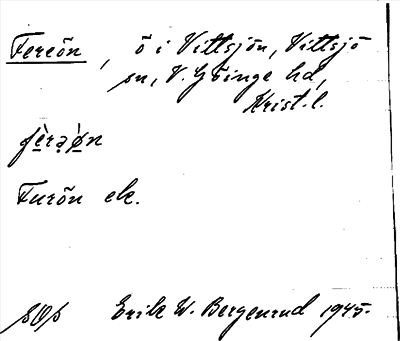 Fereön, ö i Vittsjön, Vittsjö
sn, V. Göinge hd,
Krist. l.
fèrəø̀n
Furön ek.
SOS Erik W. Bergenrud 1945.